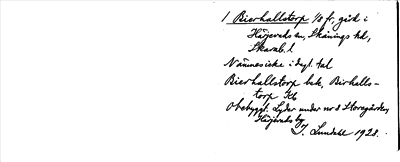 1 Bierhallstorp 1/8 fr, gård i
Härjevads sn, Skånings hd,
Skarab. l
Nännesiske i dagl. tal
Bierhallstorp bak, Birhalls-
torp Kb
Obebyggt. Lyder under nr 8 Storegården,
Härjevads by.
J. Lundahl 1928.